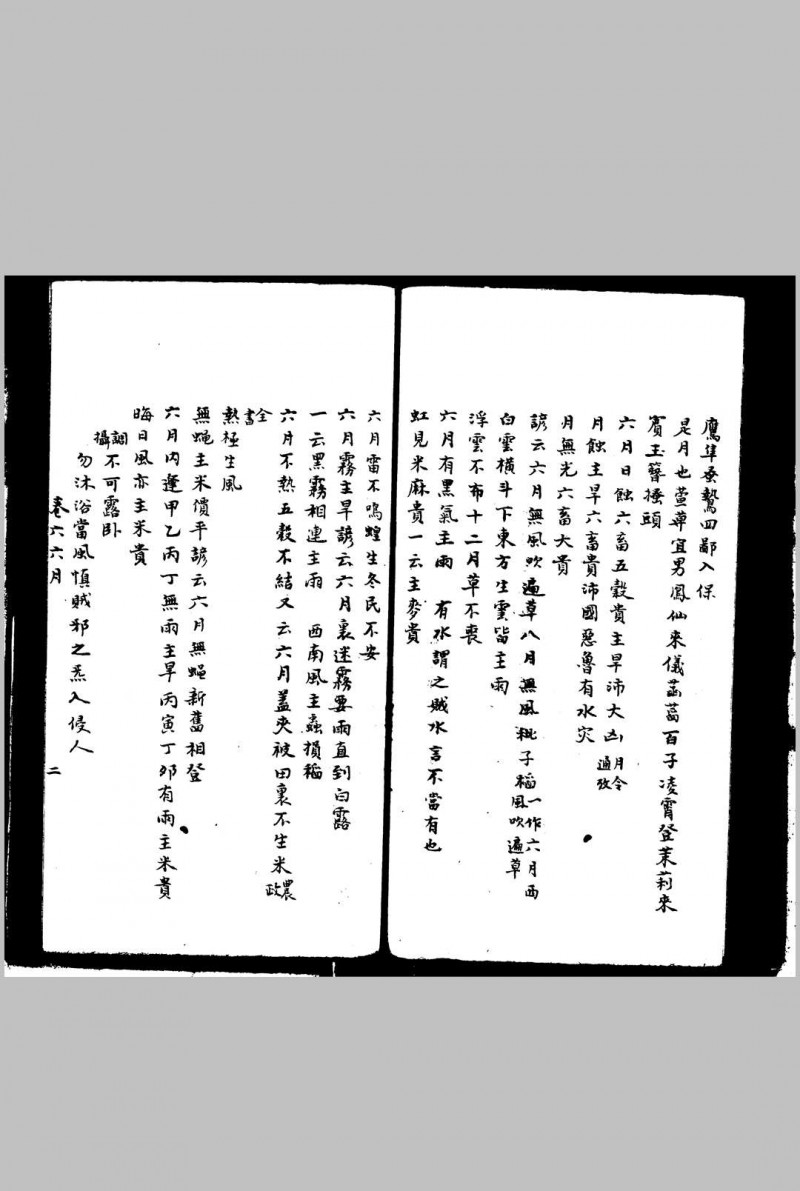 鷹隼蚤鷙四鄙入保
是月也萱草宜男鳳仙來儀菡萏百子凌霄登茉莉來
賓玉簪搔頭
六月日蝕六畜五穀貴主旱沛大凶月令通攷
月蝕主旱六畜貴沛國惡魯有水灾
月無光六畜大貴
諺云六月無風吹遍草八月無風秕子稻一作六月西風吹遍草
白雲橫斗下東方生雲皆主雨
浮雲不布十二月草不喪
六月有黑氣主雨 有水謂之賊水言不當有也
虹見米麻貴一云主麥貴
六月雷不鳴蝗生冬民不安
六月霧主旱諺云六月裏迷霧要雨直到白露
一云黑霧相連主雨 西南風主蟲損稻
六月不熱五穀不結又云六月蓋夾被田裏不生米農政
全書
熱極生風
無蝇主米價平諺云六月無蝇新舊相登
六月內逢甲乙丙丁無雨主旱丙寅丁夘有雨主米貴
晦日風亦主米貴
調攝不可露卧
勿沐浴當風慎賊邪之炁入侵人
卷六六月 二